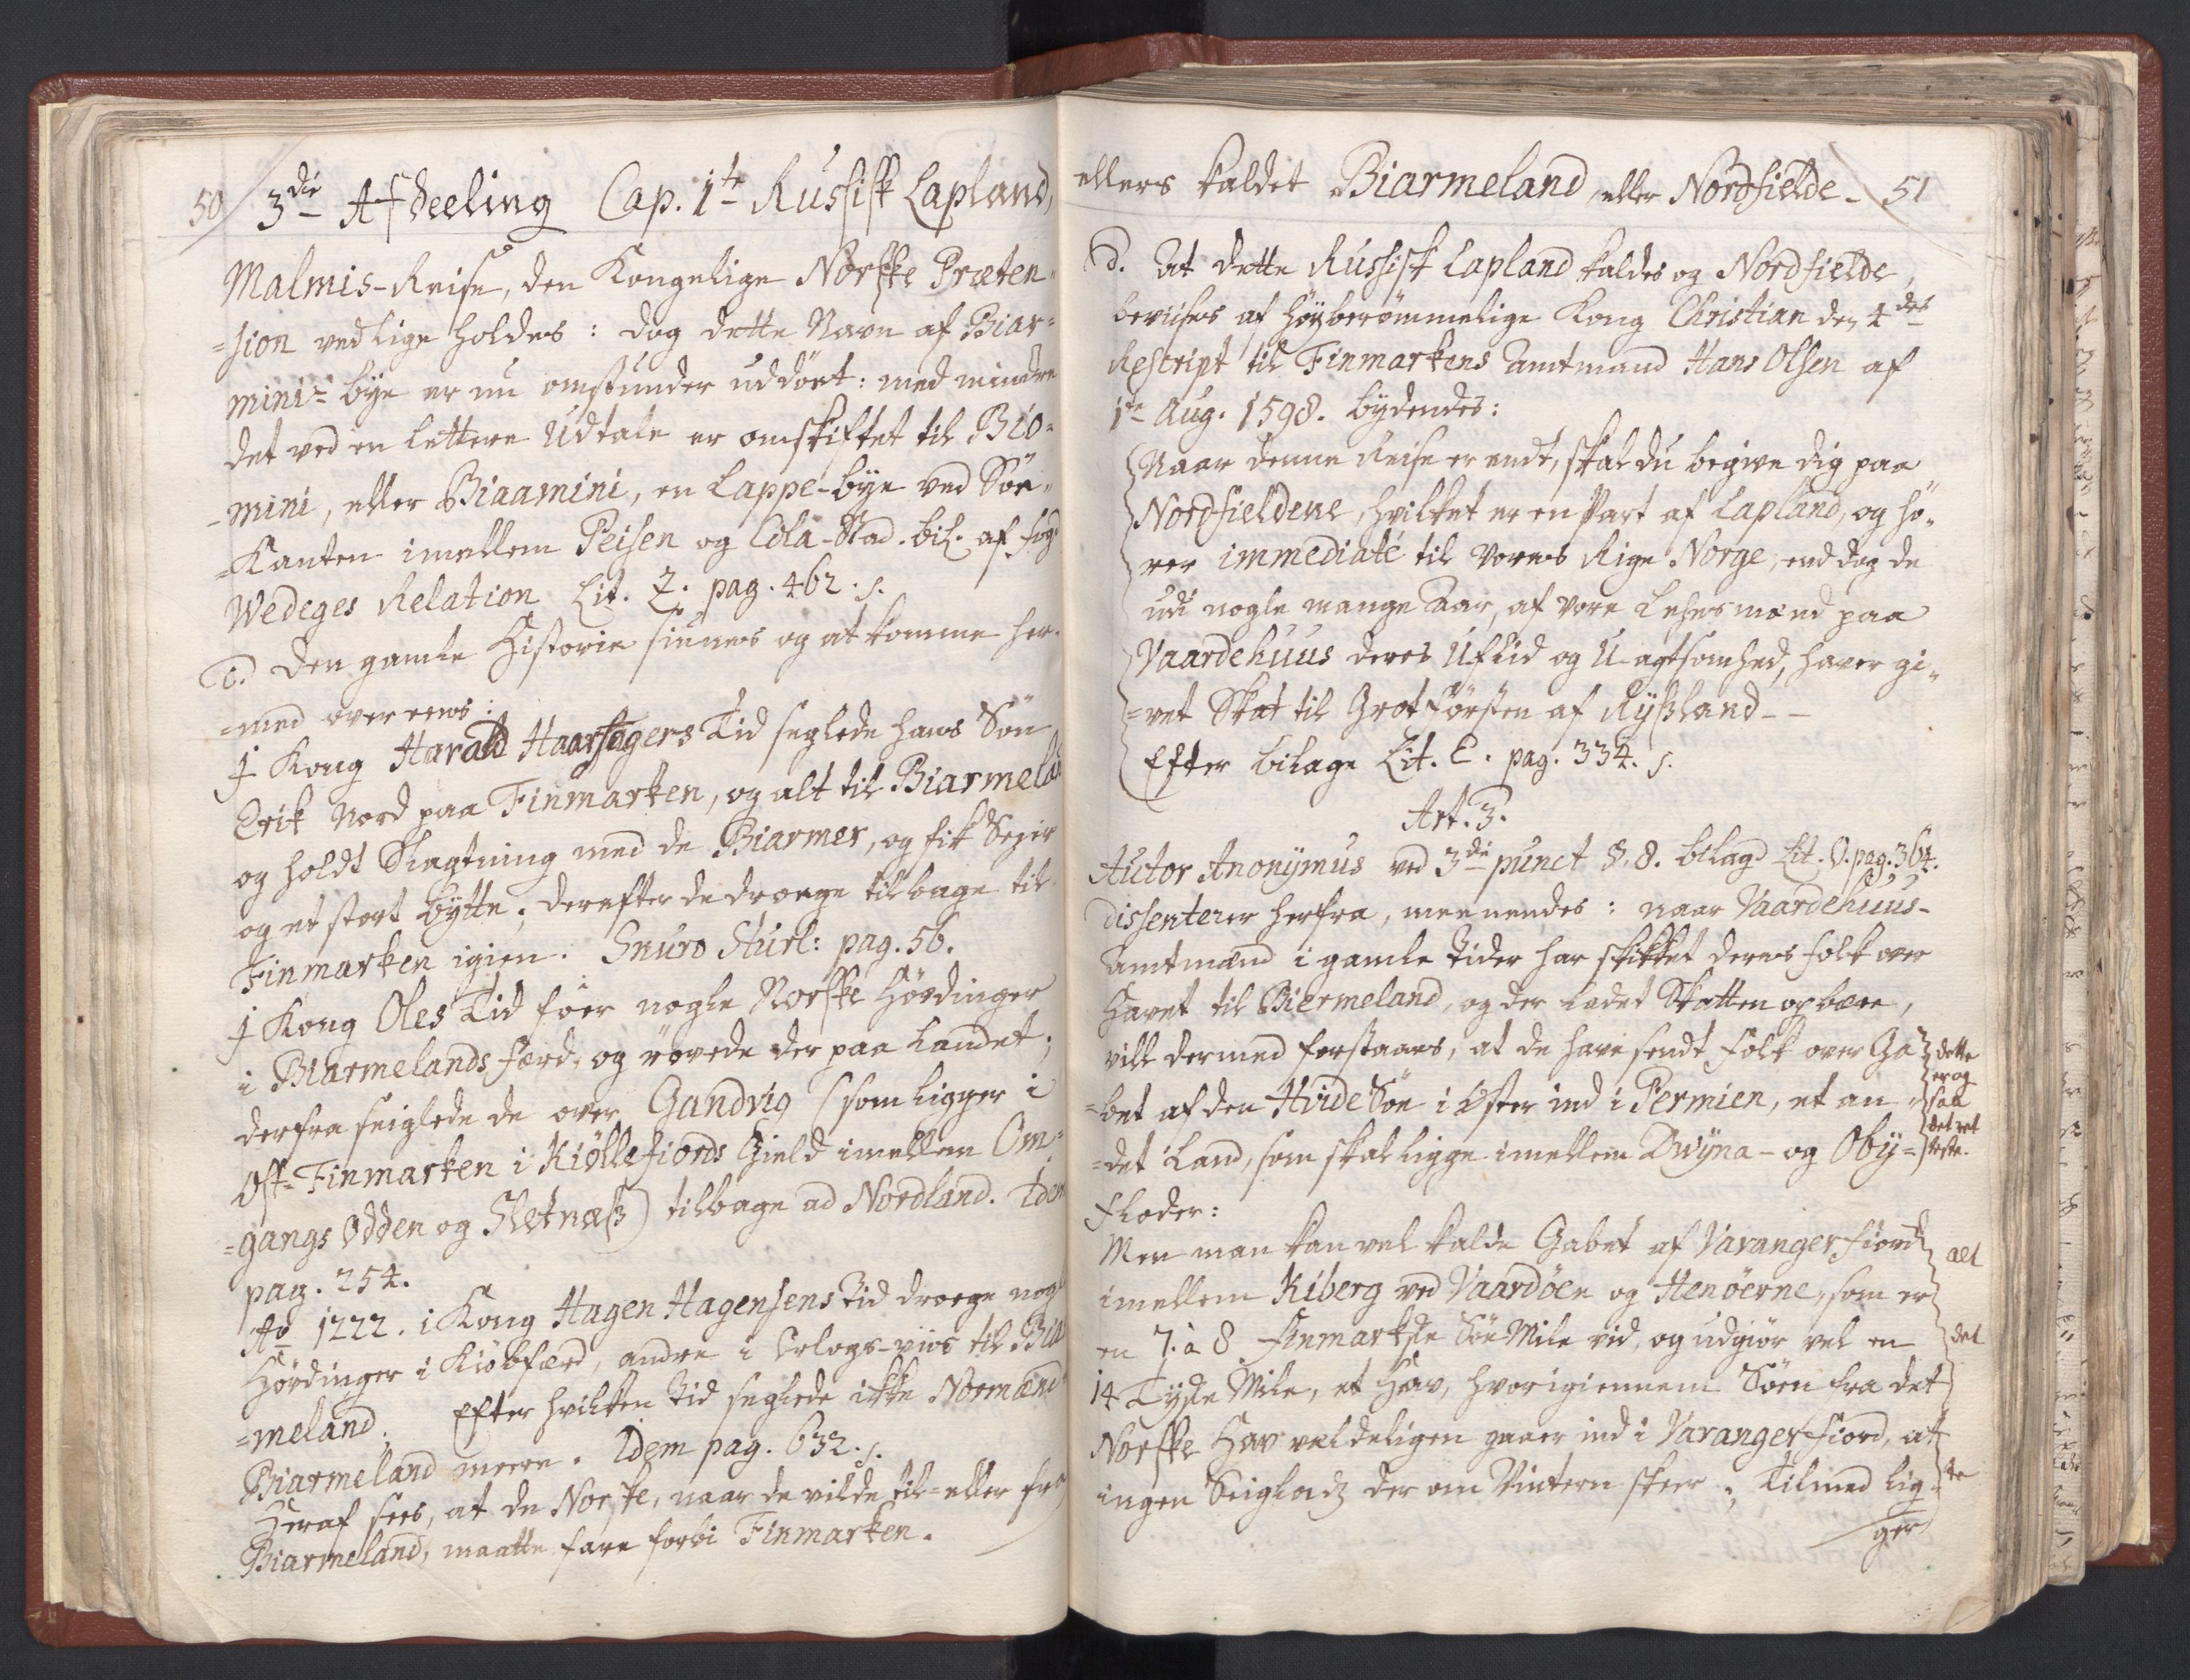 50 3die Afdeeling Cap. 1te Russisk Lapland,
Malmis-Reise, den Kongelige Norske Præten-
=sion ved lige holdes: dog dette Navn af Biar=
mini= bye er nu omstunder uddöet: med mindre
det ved en lettere Udtale er omskiftet til Bio=
-mini, eller Biaamini, en Lappe-bye ved Söe-
=Kanten imellem Peisen og Cola-Stad. bil. af fog
Wedeges Relation Lit. Z. pag. 462. s.
C. Den gamle Historie siunes og at komme her-
=med overeens:
J Kong Harald Haarfagers Tid seglede hans Sön
Erik Nord paa Finmarken, og alt til Biarmeland
og holdt Slagtning med de Biarmer, og fik Seyer
og et stort bytte; derefter de droege tilbage til
Finmarken igien. Snuro Sturl: pag. 56.
J Kong Oles Tid foer nogle Norske Hövdinger
i Biarmelands færd, og rövede der paa Landet;
derfra seiglede de over Gandvig (som ligger i
Ost-Finmarken i Kiöllefiords Gield imellem Om=
=gangs Odden og Sletnæss) tilbage ad Nordland. Idem
pag. 254.
Ao 1222. i Kong Hagen Hagensens Tid droege nogle
Hövdinger i Kiöbfærd, andre i Orlogs-viis til Biar
=meland. Efter hvilken Tid seglede ikke Normænd
Biarmeland meere. Idem pag. 632. s.
Heraf sees, at de Norske, naar de vilde til= eller fra
Biarmeland, maatte fare forbi Finmarken.
ellers kaldet Biarmeland, eller Nordfielde - 51
D. At dette Russisk Lapland kaldes og Nordfielde,
beviises af Höyberömmelige Kong Christian den 4des
Rescript til Finmarkens Amtmand Hans Olsen af
1te Aug. 1598. bydendes:
Naar denne Reise er endt, skal du begive dig paa
Nordfieldene, hvilket er en Part af Lapland, og hö-
rer immediatè til vores Rige Norge, end dog de
udi nogle mange Aar, af vore Lehnsmænd paa
Vaardehuus deres Uflid og U-agtsomhed, haver gi-
=vet Skat til Grotförsten af Rysland--
Efter bilage Lit. E. pag. 334. s.
Art. 3.
Autor Anonymus ved 3die punct 8. 8. bilagd Lit. O. pag. 364.
dissenterer herfra, meenendes: naar Vaardehuus-
Amtmænd i gamle Tider har skikket deres folk over
Havet til Biermeland, og der ladet Skatten opbære,
vill dermed forstaaes, at de have sendt folk over Ga-
=bet af den Hvide Söe i Öster ind i Permien, et an-
=det Land, som skal ligge imellem Dwyna- og Oby=
floder:
dette
er og
saa
det ret
teste.
Men man kan vel kalde Gabet af Varangerfiord
imellem Kiberg ved Vaardöen og Henöerne, som er
en 7. à 8 Finmarkske Söe Mile vid, og udgiör vel en
14 Tyske Mile, et Hav, hvorigiennem Söen fra det
Norske Hav vældeligen gaaer ind i Varangerfiord, at
ingen Seiglads der om Vintern skeer; Tilmed lig-
ger
alt
det
te